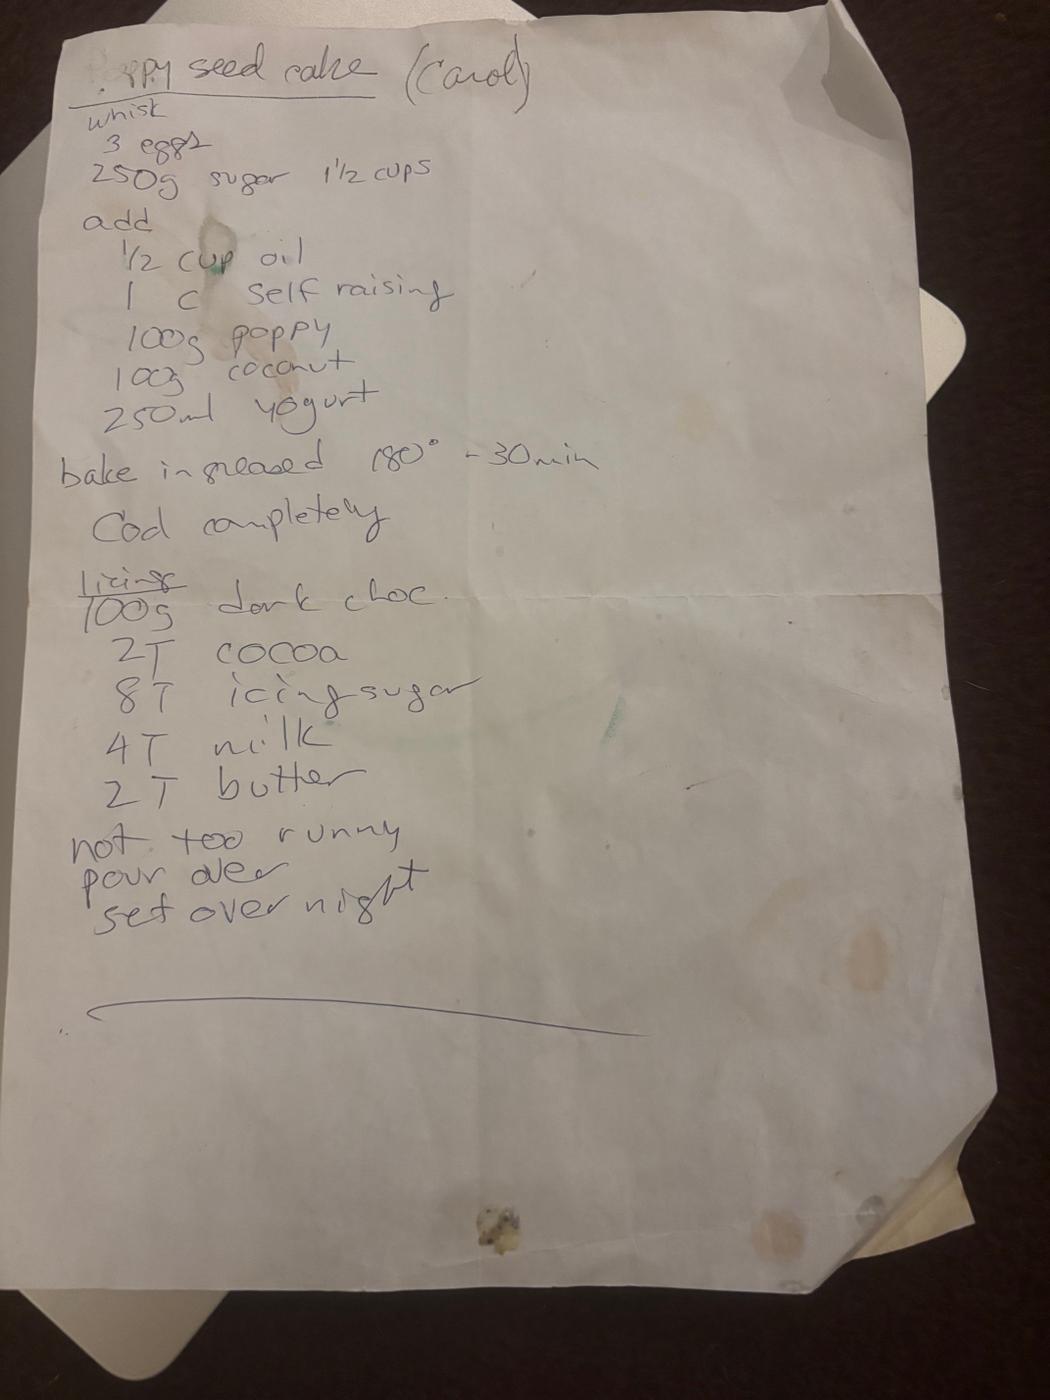 Poppy seed cake (Carol)
whisk
3 eggs
250g sugar 1 1/2 cups
add
1/2 cup oil
1 c self raising
100g poppy
100g coconut
250ml yogurt
bake in greased 180° - 30min
Cool completely
Icing
100g dark choc.
2T cocoa
8T icing sugar
4T milk
2T butter
not too runny
pour over
set over night